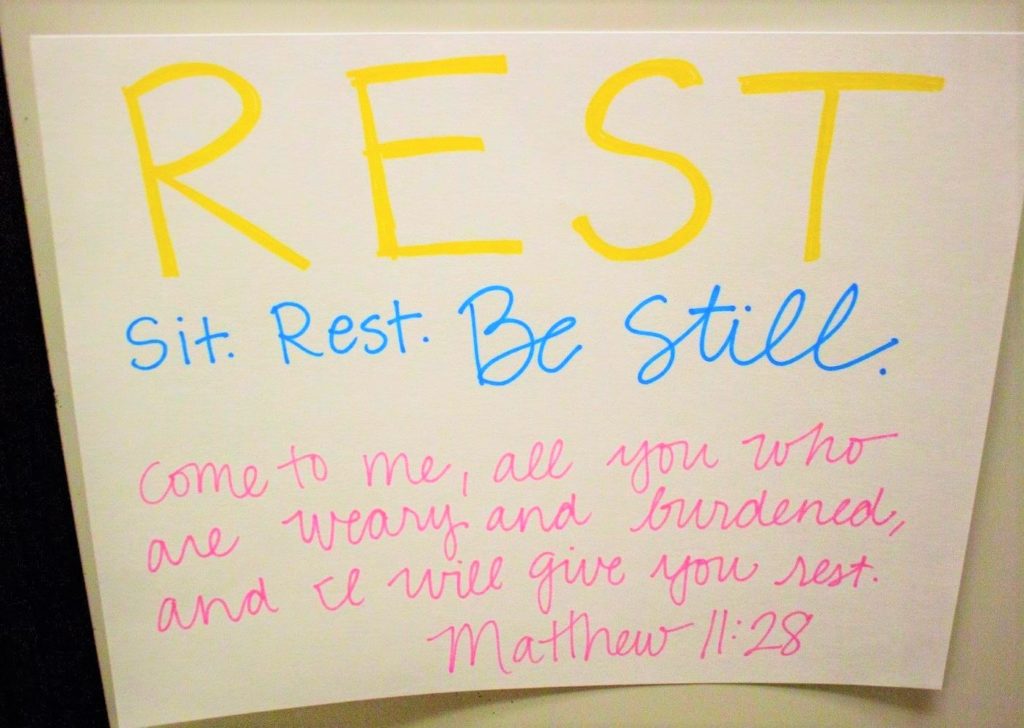 REST
Sit. Rest. Be Still.
Come to me, all you who
are weary and burdened,
and I will give you rest.
Matthew 11:28